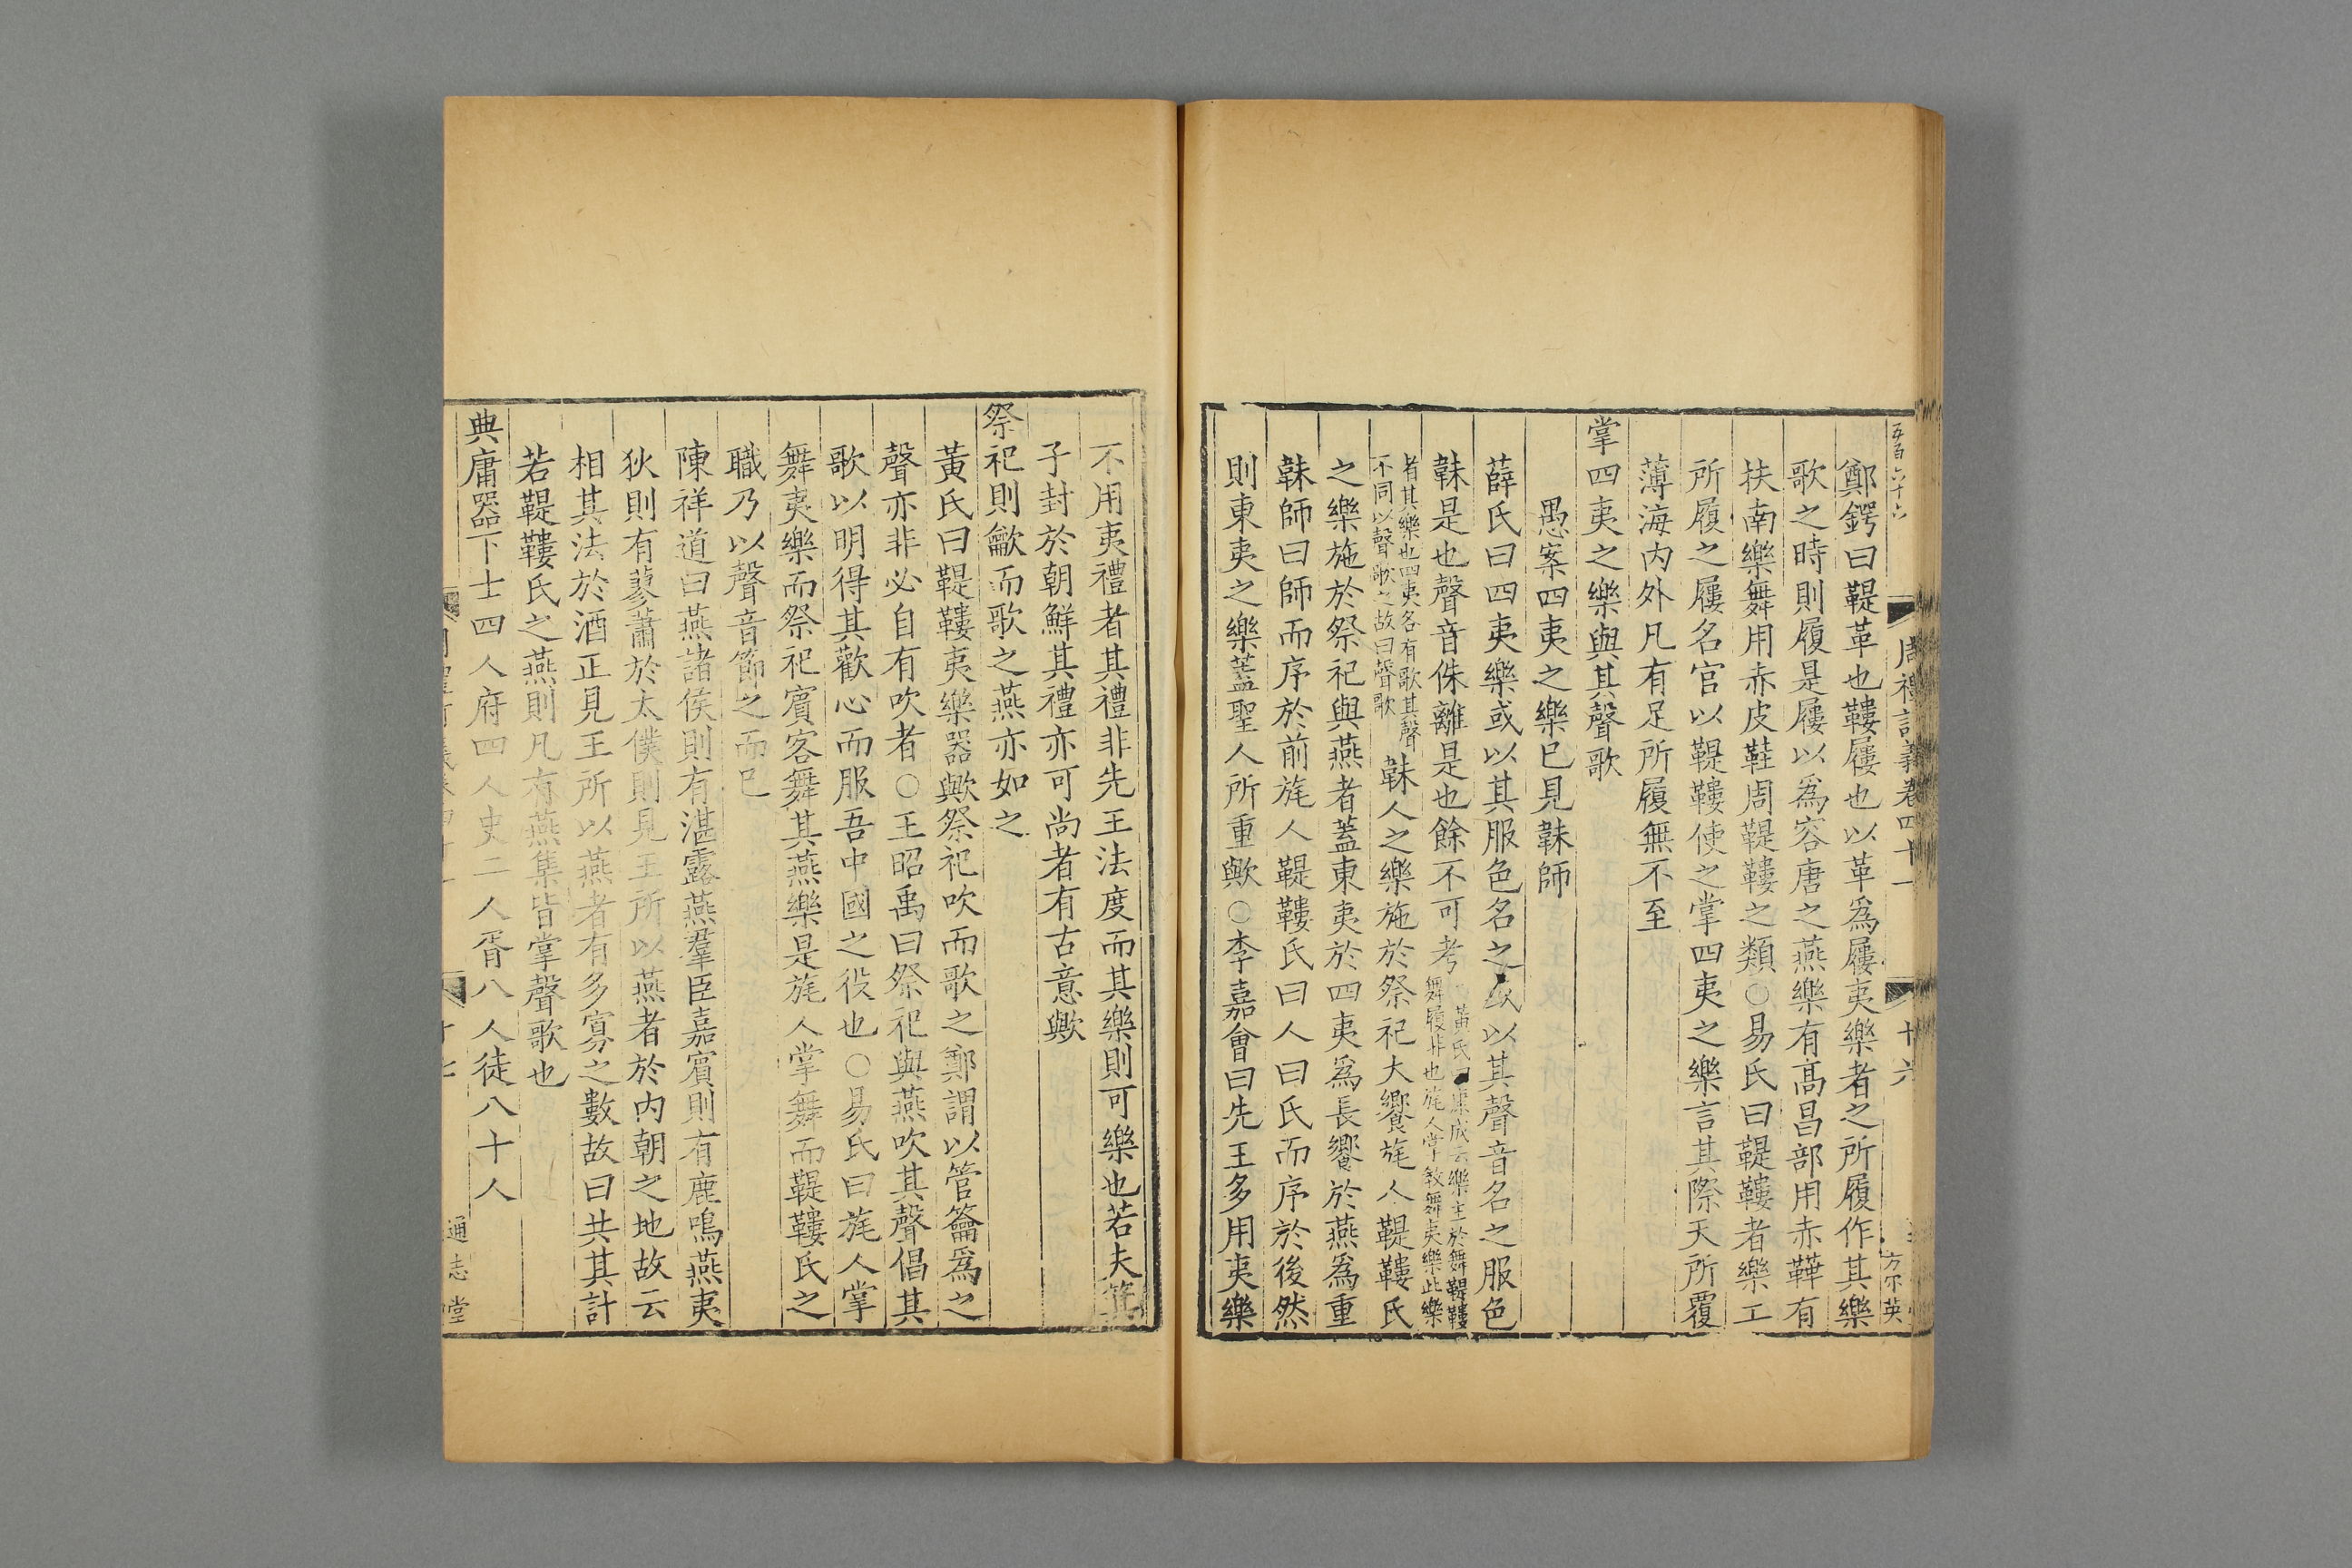 五百六十六
周禮訂義卷四十一
十六
方尔英
鄭鍔曰鞮革也鞻屨也以革爲屨夷樂者之所履作其樂
歌之時則履是屨以爲容唐之燕樂有高昌部用赤鞾有
扶南樂舞用赤皮鞋周鞮鞻之類○易氏曰鞮鞻者樂工
所履之屨名官以鞮鞻使之掌四夷之樂言其際天所覆
薄海内外凡有足所履無不至
掌四夷之樂與其聲歌
愚案四夷之樂已見韎師
薛氏曰四夷樂或以其服色名之或以其聲音名之服色
韎是也聲音侏離是也餘不可考
黄氏曰康成云樂主於舞鞮鞻
舞履非也旄人掌敎舞夷樂此樂
者其樂也四夷各有歌其聲
不同以聲歌之故曰聲歌
韎人之樂施於祭祀大饗旄人鞮鞻氏
之樂施於祭祀與燕者蓋東夷於四夷爲長饗於燕爲重
韎師曰師而序於前旄人鞮鞻氏曰人曰氏而序於後然
則東夷之樂蓋聖人所重歟○李嘉會曰先王多用夷樂
不用夷禮者其禮非先王法度而其樂則可樂也若夫箕
子封於朝鮮其禮亦可尚者有古意歟
祭祀則龡而歌之燕亦如之
黄氏曰鞮鞻夷樂器歟祭祀吹而歌之鄭謂以管籥爲之
聲亦非必自有吹者○王昭禹曰祭祀與燕吹其聲倡其
歌以明得其歡心而服吾中國之役也○易氏曰旄人掌
舞夷樂而祭祀賓客舞其燕樂是旄人掌舞而鞮鞻氏之
職乃以聲音節之而已
陳祥道曰燕諸侯則有湛露燕羣臣嘉賓則有鹿鳴燕夷
狄則有蓼蕭於太僕則見王所以燕者於内朝之地故云
相其法於酒正見王所以燕者有多寡之數故曰共其計
若鞮鞻氏之燕則凡有燕集皆掌聲歌也
典庸器下士四人府四人史二人胥八人徒八十人
十七
通志堂